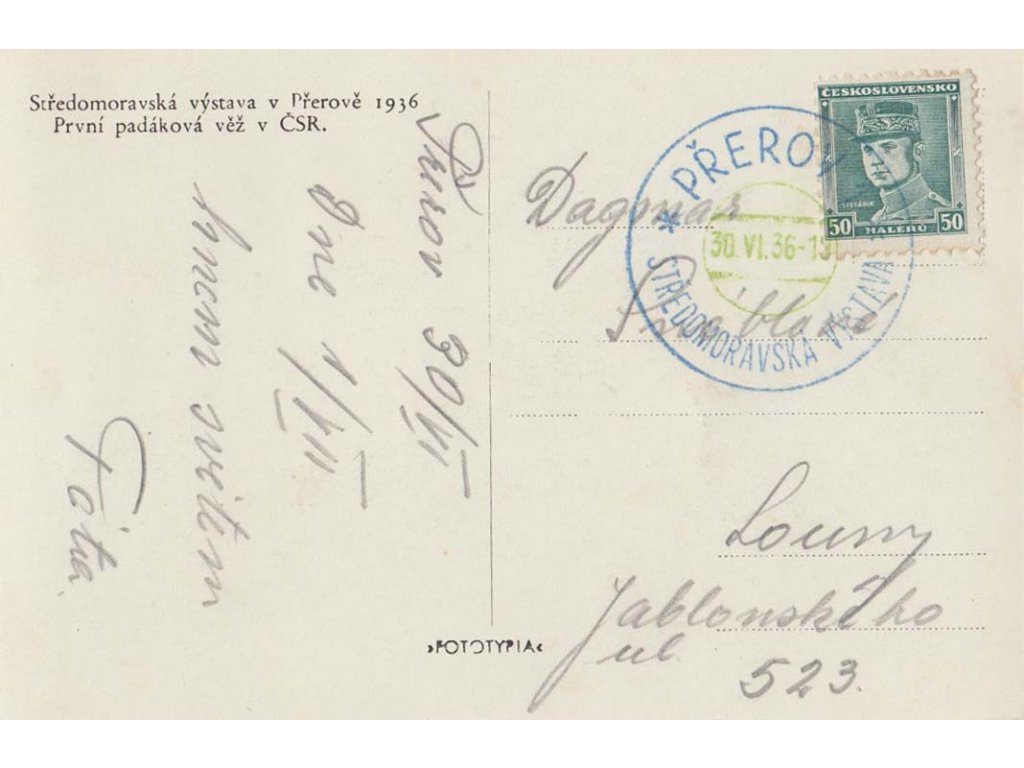 Středomoravská výstava v Přerově 1936
První padáková věž v ČSR.
Přerov 30/VI
Dne 1/VII
Táta
›FOTOTYPIA‹
ČESKOSLOVENSKO
ŠTEFÁNIK
50 HALÉŘŮ 50
* PŘEROV
30.VI.36-
STŘEDOMORAVSKÁ VÝSTAVA
Dagmar
Louny
Jablonského
ul.
523.